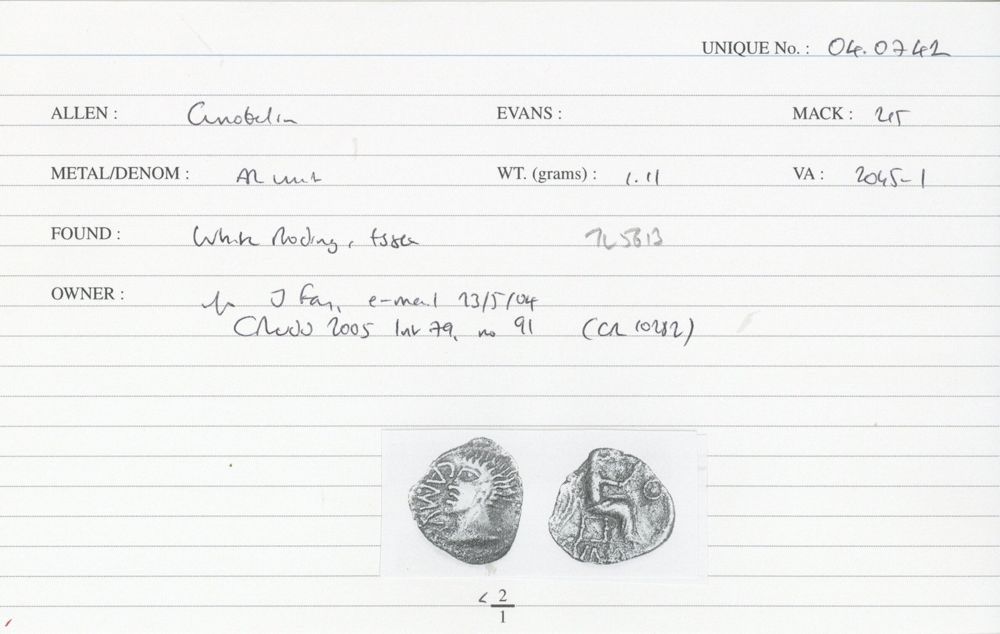 UNIQUE No. : 04.0742
ALLEN : Cunobelin EVANS : MACK : 215
METAL/DENOM : AR unit WT. (grams) : 1.11 VA : 2045-1
FOUND : White Roding, Essex TL 5613
OWNER : J Fay, e-mail 23/5/04
2005 79, no 91 (CR 10282)
CAMV
< 2
1